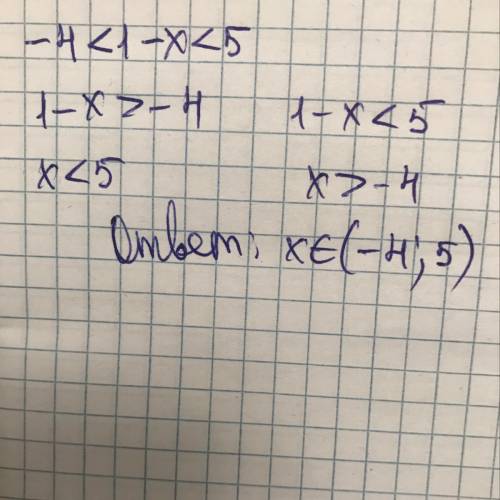 -4<1-x<5
1-x>-4 1-x<5
x<5 x>-4
Ответ: x∈(-4; 5)